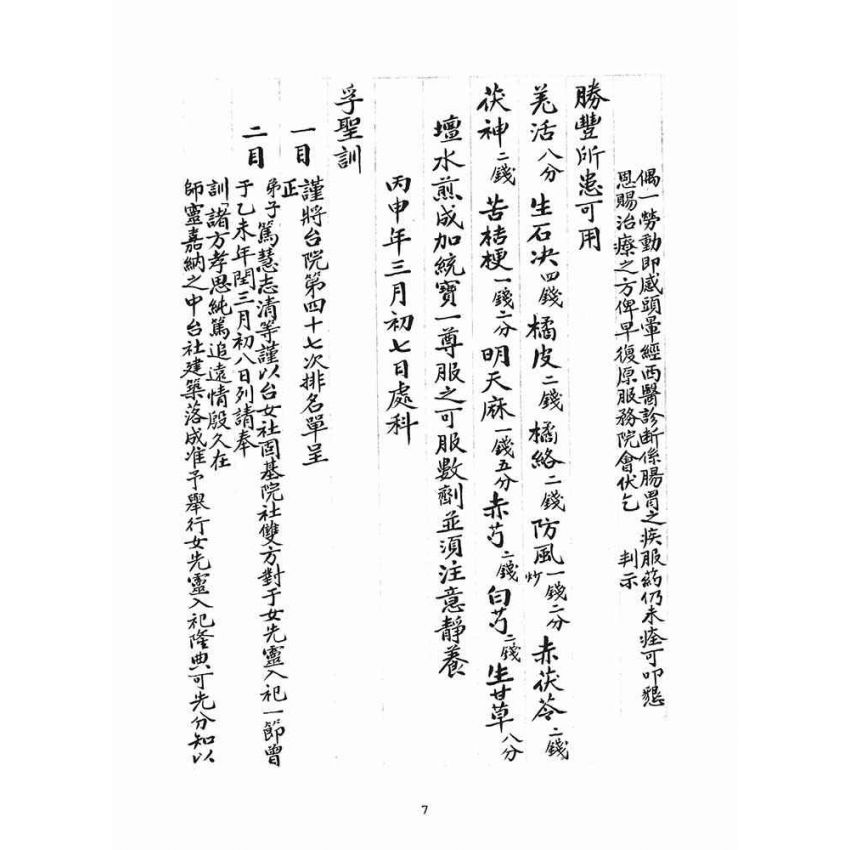 偶一勞動即感頭暈經西醫診斷係腸胃之疾服葯仍未痊可叩懇
恩賜治療之方俾早復原服務院會伏乞 判示
勝豐所患可用
羌活八分 生石决四錢 橘皮二錢 橘絡二錢 防風一錢二分炒 赤茯苓二錢
茯神二錢 苦桔梗一錢二分 明天麻一錢五分 赤芍二錢 白芍二錢 生甘草八分
壇水煎成加統寶一尊服之可服數劑並須注意靜養
丙申年三月初七日處科
孚聖訓
一目 謹將台院第四十七次排名單呈
正
二目 弟子篤慧志清等謹以台女社固基院社雙方對于女先靈入祀一節曾
于乙未年閏三月初八日列請奉
訓「諸方孝思純篤追遠情殷久在
師靈嘉納之中台社建築落成准予舉行女先靈入祀隆典可先分知以
7